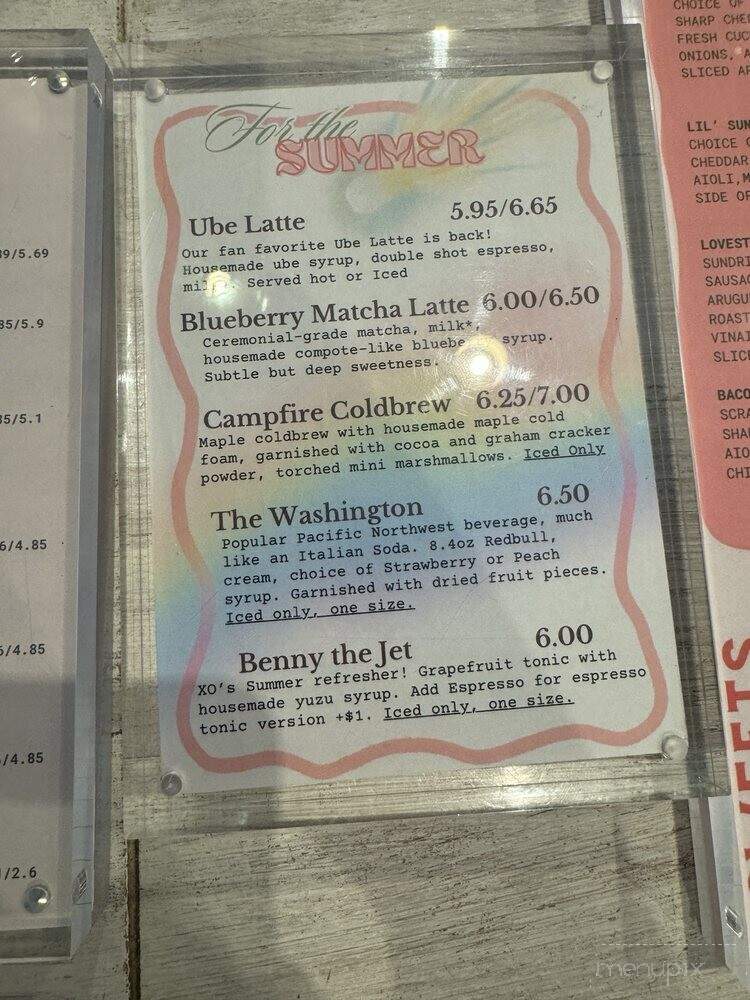 For the
SUMMER
Ube Latte 5.95/6.65
Our fan favorite Ube Latte is back!
Housemade ube syrup, double shot espresso,
Served hot or Iced
Blueberry Matcha Latte 6.00/6.50
Ceremonial-grade matcha, milk*,
housemade compote-like syrup.
Subtle but deep sweetness.
Campfire Coldbrew 6.25/7.00
Maple coldbrew with housemade maple cold
foam, garnished with cocoa and graham cracker
powder, torched mini marshmallows. Iced Only
The Washington 6.50
Popular Pacific Northwest beverage, much
like an Italian Soda. 8.4oz Redbull,
cream, choice of Strawberry or Peach
syrup. Garnished with dried fruit pieces.
Iced only, one size.
Benny the Jet 6.00
XO's Summer refresher! Grapefruit tonic with
housemade yuzu syrup. Add Espresso for espresso
tonic version +$1. Iced only, one size.
/5.69
/5.9
/5.1
/4.85
/4.85
/4.85
/2.6
CHOICE OF
SHARP
FRESH
ONIONS,
SLICED
LIL'
CHOICE
CHEDDAR
AIOLI,
SIDE OF
SUNDRI
SAUSAG
ARUGU
ROAST
VINAI
SLIC
BACO
SCRA
SHA
AIO
CHI
menupix